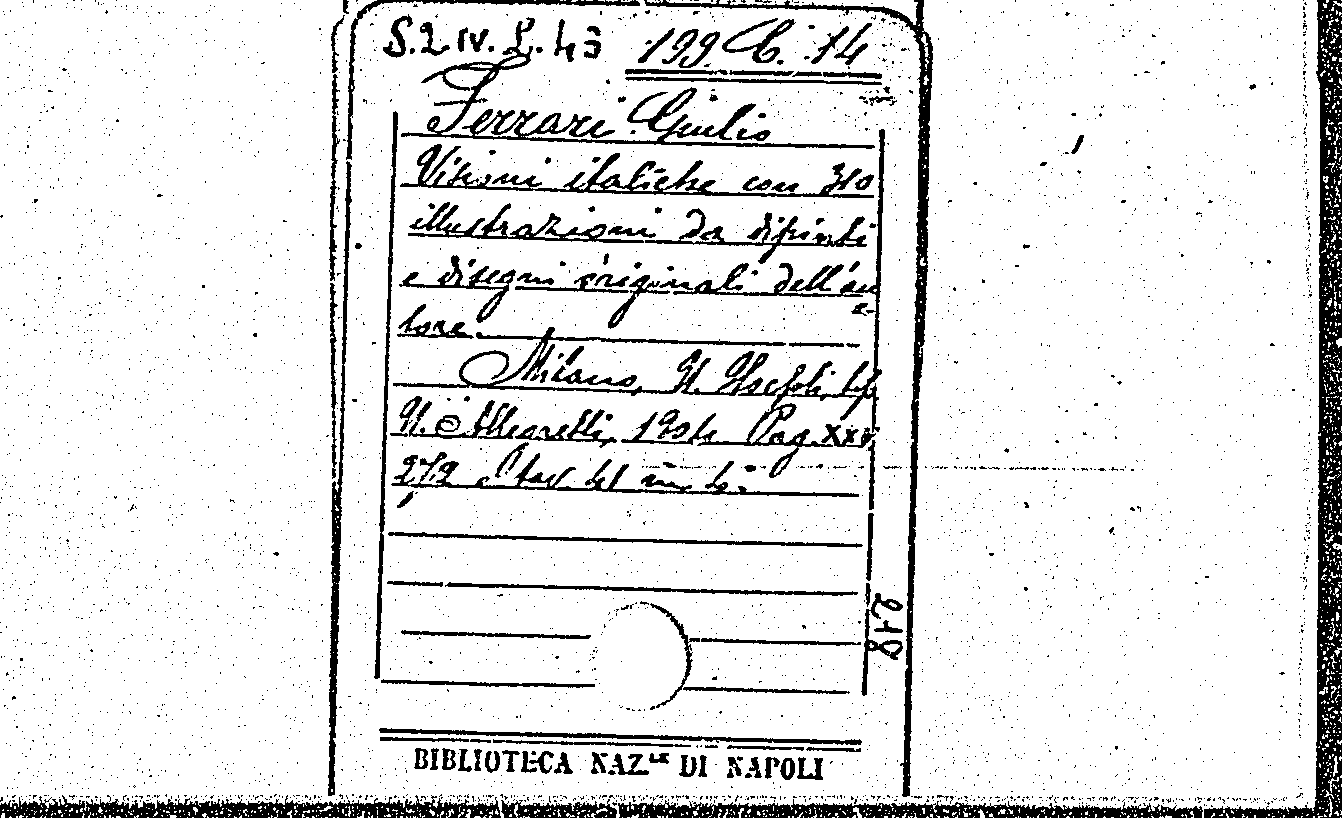 S.2.IV.L.43 199.C.14
Ferrari Giulio
Visioni italiche con 310
illustrazioni da dipinti
e disegni originali dell'au
tore.
Milano, U. Hoepli, tip.
U. Allegretti, 1904. Pag. XXV,
272 tav. 41 in 4º:
218
BIBLIOTECA NAZ.LE DI NAPOLI